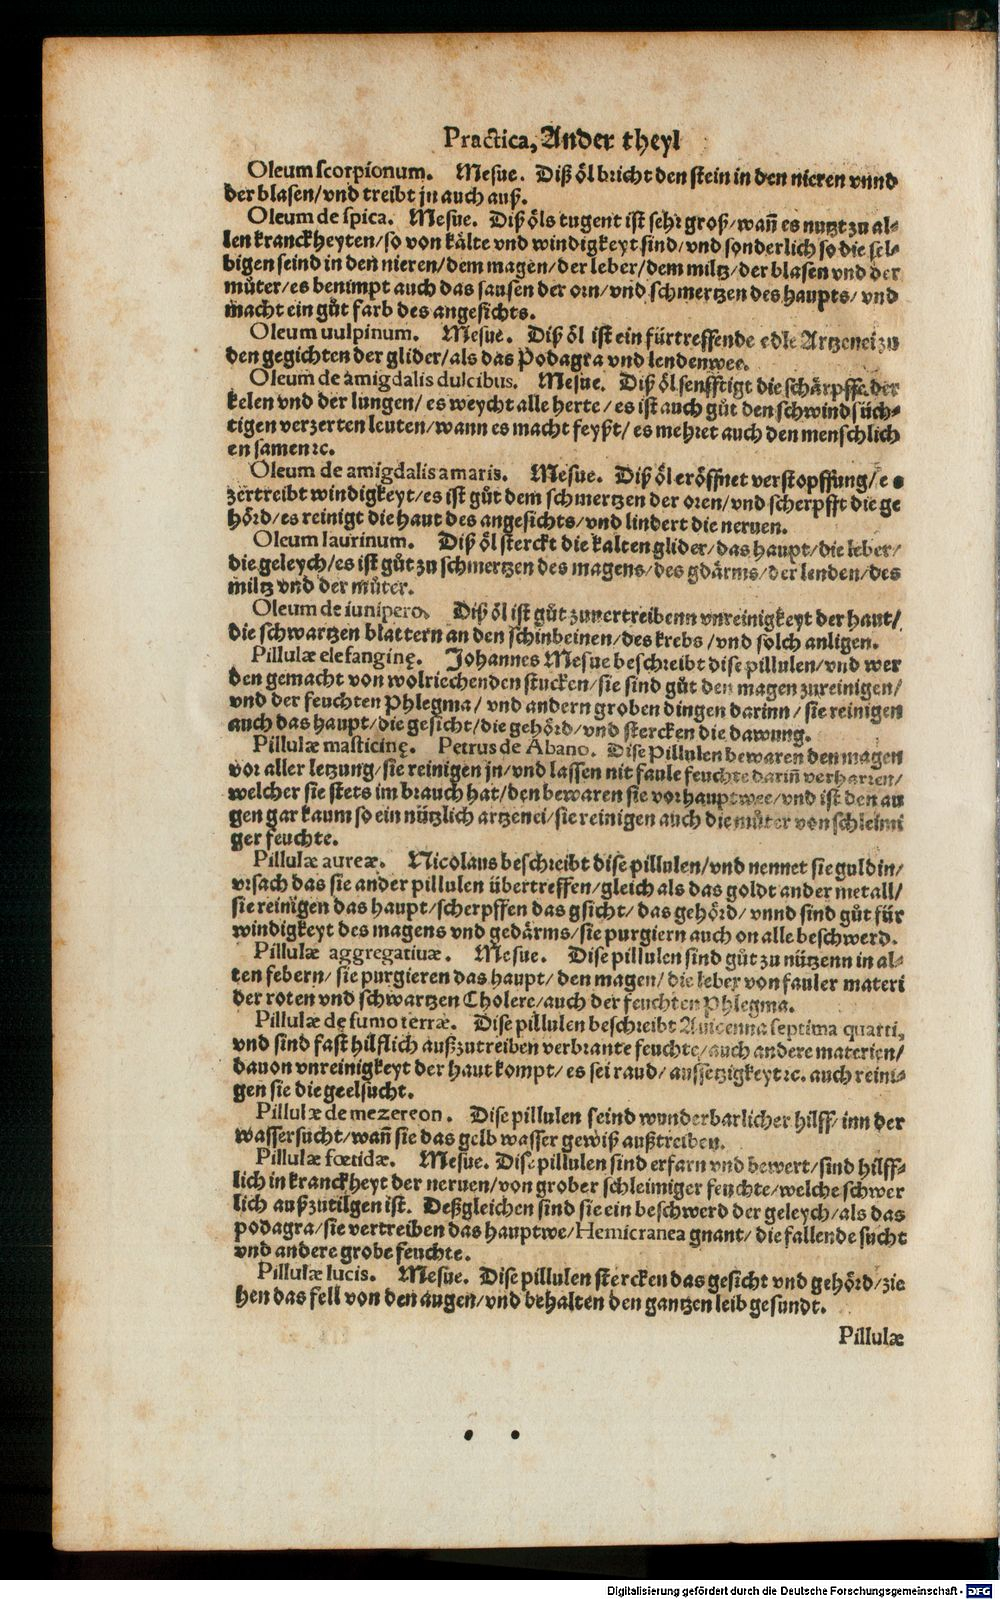 Practica, Ander theyl
Oleum scorpionum. Mesue. Diß öl bricht den stein in den nieren vnnd
der blasen/vnd treibt jn auch auß.
Oleum de spica. Mesue. Diß öls tugent ist sehr groß/wañ es nutzt zu al-
len kranckheyten/so von kälte vnd windigkeyt sind/vnd sonderlich so die sel-
bigen seind in den nieren/dem magen/der leber/dem miltz/der blasen vnd der
můter/es benimpt auch das sausen der orn/vnd schmertzen des haupts/vnd
macht ein gůt farb des angesichts.
Oleum uulpinum. Mesue. Diß öl ist ein fürtreffende edle Artzenei zu
den gegichten der glider/als das Podagra vnd lendenwee.
Oleum de amigdalis dulcibus. Mesue. Diß öl senfftigt die schärpffe der
kelen vnd der lungen/es weycht alle herte/es ist auch gůt den schwindsüch-
tigen verzerten leuten/wann es macht feyßt/es mehret auch den menschlich
en samen ⁊c.
Oleum de amigdalis amaris. Mesue. Diß öl eröffnet verstopffung/e
zertreibt windigkeyt/es ist gůt dem schmertzen der oren/vnd scherpfft die ge
hörd/es reinigt die haut des angesichts/vnd lindert die neruen.
Oleum laurinum. Diß öl sterckt die kalten glider/das haupt/die leber/
die geleych/es ist gůt zu schmertzen des magens/des gdärms/der lenden/des
miltz vnd der můter.
Oleum de iunipero. Diß öl ist gůt zuuertreibenn vnreinigkeyt der haut/
die schwartzen blattern an den schinbeinen/des krebs/vnd solch anligen.
Pillulæ elefanginę. Johannes Mesue beschreibt dise pillulen/vnd wer
den gemacht von wolriechenden stucken/sie sind gůt den magen zureinigen/
vnd der feuchten Phlegma/vnd andern groben dingen darinn/sie reinigen
auch das haupt/die gesicht/die gehörd/vnd stercken die dawung.
Pillulæ masticinę. Petrus de Abano. Dise Pillulen bewaren den magen
vor aller letzung/sie reinigen jn/vnd lassen nit faule feuchte dariñ verharren/
welcher sie stets im brauch hat/den bewaren sie vor hauptwee/vnd ist den au
gen gar kaum so ein nützlich artzenei/sie reinigen auch die můter von schleimi
ger feuchte.
Pillulæ aureæ. Nicolaus beschreibt dise pillulen/vnd nennet sie guldin/
vrsach das sie ander pillulen übertreffen/gleich als das goldt ander metall/
sie reinigen das haupt/scherpffen das gsicht/das gehörd/vnnd sind gůt für
windigkeyt des magens vnd gedärms/sie purgiern auch on alle beschwerd.
Pillulæ aggregatiuæ. Mesue. Dise pillulen sind gůt zu nützenn in al-
ten febern/sie purgieren das haupt/den magen/die leber von fauler materi
der roten vnd schwartzen Cholere/auch der feuchten Phlegma.
Pillulæ de fumo terræ. Dise pillulen beschreibt Auicenna septima quarti,
vnd sind fast hilflich außzutreiben verbrante feuchte/auch andere materien/
dauon vnreinigkeyt der haut kompt/es sei raud/aussetzigkeyt ⁊c. auch reini-
gen sie die geelsucht.
Pillulæ de mezereon. Dise pillulen seind wunderbarlicher hilff/inn der
wassersucht/wañ sie das gelb wasser gewiß außtreiben.
Pillulæ fœtidæ. Mesue. Dise pillulen sind erfarn vnd bewert/sind hilff-
lich in kranckheyt der neruen/von grober schleimiger feuchte/welche schwer
lich außzutilgen ist. Deßgleichen sind sie ein beschwerd der geleych/als das
podagra/sie vertreiben das hauptwe/Hemicranea gnant/die fallende sucht
vnd andere grobe feuchte.
Pillulæ lucis. Mesue. Dise pillulen stercken das gesicht vnd gehörd/zie
hen das fell von den augen/vnd behalten den gantzen leib gesundt.
Pillulæ
Digitalisierung gefördert durch die Deutsche Forschungsgemeinschaft - DFG